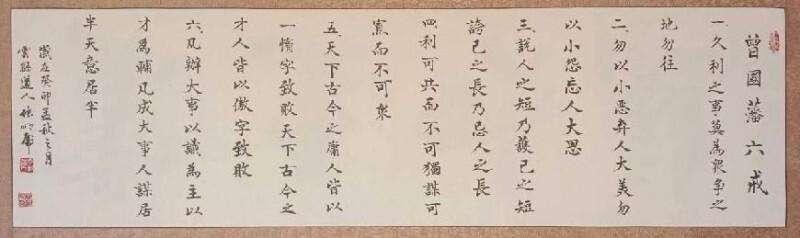 曾國藩六戒
一久利之事莫為衆爭之
地勿往
二勿以小惡弃人大美勿
以小怨忘人大恩
三說人之短乃護己之短
誇己之長乃忌人之長
四利可共而不可獨謀可
寡而不可衆
五天下古今之庸人皆以
一惰字致敗天下古今之
才人皆以傲字致敗
六凡辦大事以識為主以
才為輔凡成大事人謀居
半天意居半
歲在癸卯孟秋之月
道人